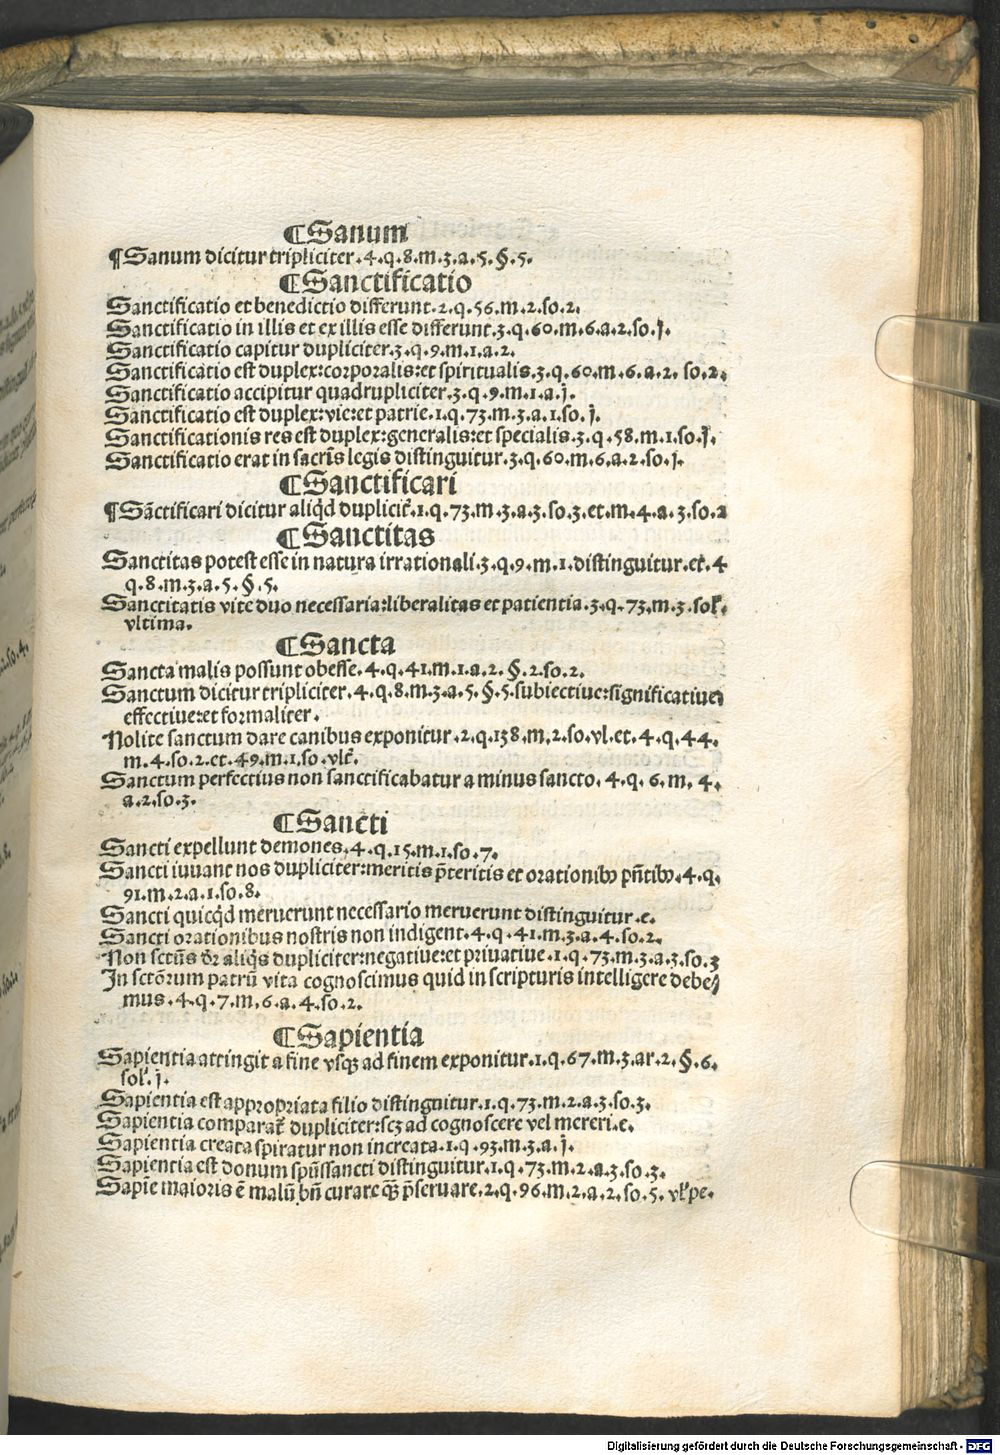 ¶Sanum
¶Sanum dicitur tripliciter.4.q.8.m.3.a.5.§.5.
¶Sanctificatio
Sanctificatio et benedictio differunt.2.q.56.m.2.so.2.
Sanctificatio in illis et ex illis esse differunt.3.q.60.m.6.a.2.so.j.
Sanctificatio capitur dupliciter.3.q.9.m.1.a.2.
Sanctificatio est duplex:corporalis:et spiritualis.3.q.60.m.6.a.2.so.2.
Sanctificatio accipitur quadrupliciter.3.q.9.m.1.a.j.
Sanctificatio est duplex:vie:et patrie.1.q.73.m.3.a.1.so.j.
Sanctificationis res est duplex:generalis:et specialis.3.q.58.m.1.so.j.
Sanctificatio erat in sacrīs legis distinguitur.3.q.60.m.6.a.2.so.j.
¶Sanctificari
¶Sāctificari dicitur aliq̄d duplicit̄.1.q.73.m.3.a.3.so.3.et.m.4.a.3.so.2
¶Sanctitas
Sanctitas potest esse in natura irrationali.3.q.9.m.1.distinguitur.et.4
q.8.m.3.a.5.§.5.
Sanctitatis vite duo necessaria:liberalitas et patientia.3.q.73.m.3.sol̄.
vltima.
¶Sancta
Sancta malis possunt obesse.4.q.41.m.1.a.2.§.2.so.2.
Sanctum dicitur tripliciter.4.q.8.m.3.a.5.§.5.subiectiue:significatiue
effectiue:et formaliter.
Nolite sanctum dare canibus exponitur.2.q.138.m.2.so.vl.et.4.q.44.
m.4.so.2.et.49.m.1.so.vlt̄.
Sanctum perfectius non sanctificabatur a minus sancto.4.q.6.m.4.
a.2.so.3.
¶Sancti
Sancti expellunt demones.4.q.15.m.1.so.7.
Sancti iuuant nos dupliciter:meritis p̄teritis et orationibꝰ pn̄tibꝰ.4.q.
91.m.2.a.1.so.8.
Sancti quicq̄d meruerunt necessario meruerunt distinguitur.e.
Sancti orationibus nostris non indigent.4.q.41.m.3.a.4.so.2.
Non sctūs dr̄ aliq̄s dupliciter:negatiue:et priuatiue.1.q.73.m.3.a.3.so.3
In sctōrum patrū vita cognoscimus quid in scripturis intelligere debe/
mus.4.q.7.m.6.a.4.so.2.
¶Sapientia
Sapientia attingit a fine vsqꝫ ad finem exponitur.1.q.67.m.3.ar.2.§.6.
sol̄.j.
Sapientia est appropriata filio distinguitur.1.q.73.m.2.a.3.so.3.
Sapientia comparat̄ dupliciter:scꝫ ad cognoscere vel mereri.e.
Sapientia creata spiratur non increata.1.q.93.m.3.a.j.
Sapientia est donum spūssancti distinguitur.1.q.73.m.2.a.3.so.3.
Sapīe maioris ē malū bn̄ curare qꝫ̄ p̄seruare.2.q.96.m.2.a.2.so.5. vl̄pe.
Digitalisierung gefördert durch die Deutsche Forschungsgemeinschaft - DFG